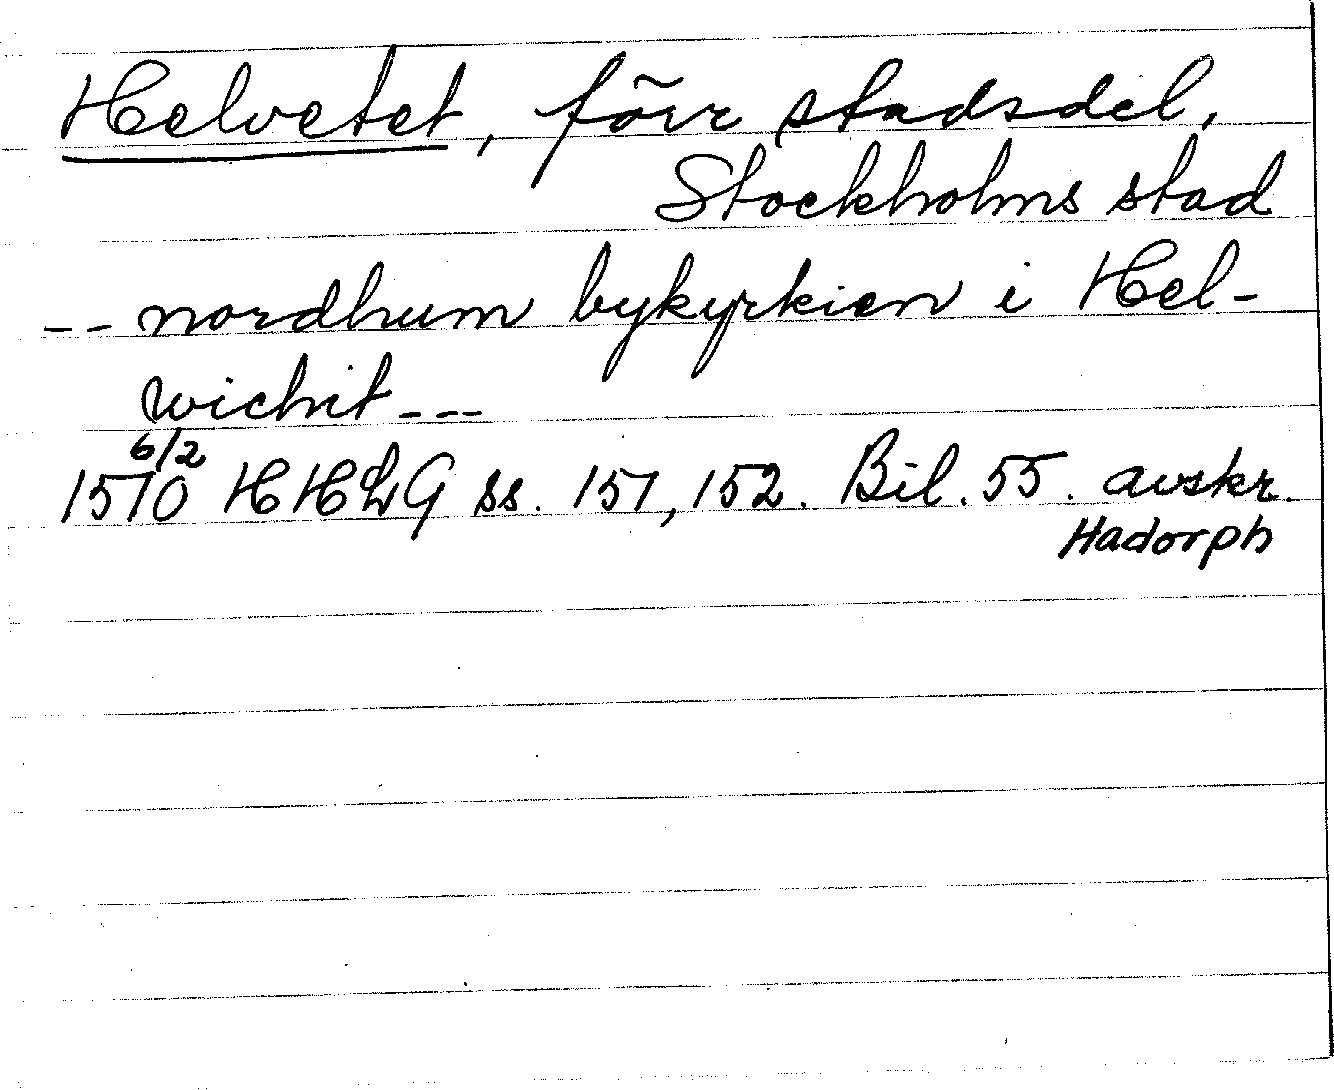 Helvetet, förr stadsdel,
Stockholms stad
-- nordhum bykyrkien i Hel-
wichit ---
6/2
1510 HHLG ss. 151, 152. Bil. 55. avskr.
Hadorph